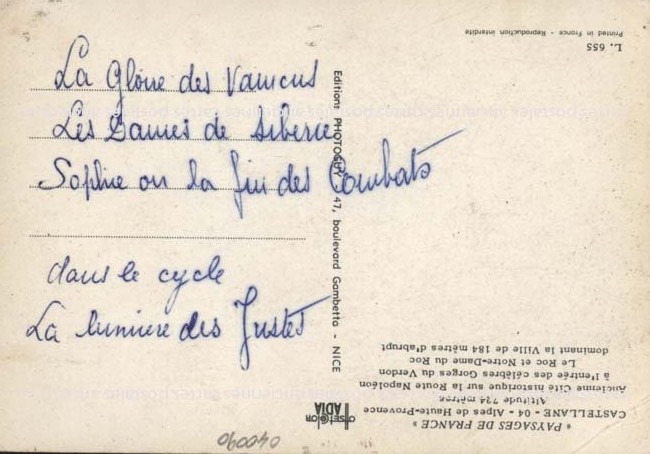 La Gloire des Vaincus
Les Dames de Siberie
Sophie ou la fin des Combats
dans le cycle
La lumiere des Justes
Editions PHOTOGUY, 47, boulevard Gambetta - NICE
« PAYSAGES DE FRANCE »
CASTELLANE - 04 - Alpes de Haute-Provence
Altitude 724 mètres
Ancienne Cité historique sur la Route Napoléon
à l'entrée des célèbres Gorges du Verdon
Le Roc et Notre-Dame du Roc
dominant la Ville de 184 mètres d'abrupt
L. 655
Printed in France - Reproduction interdite
040090